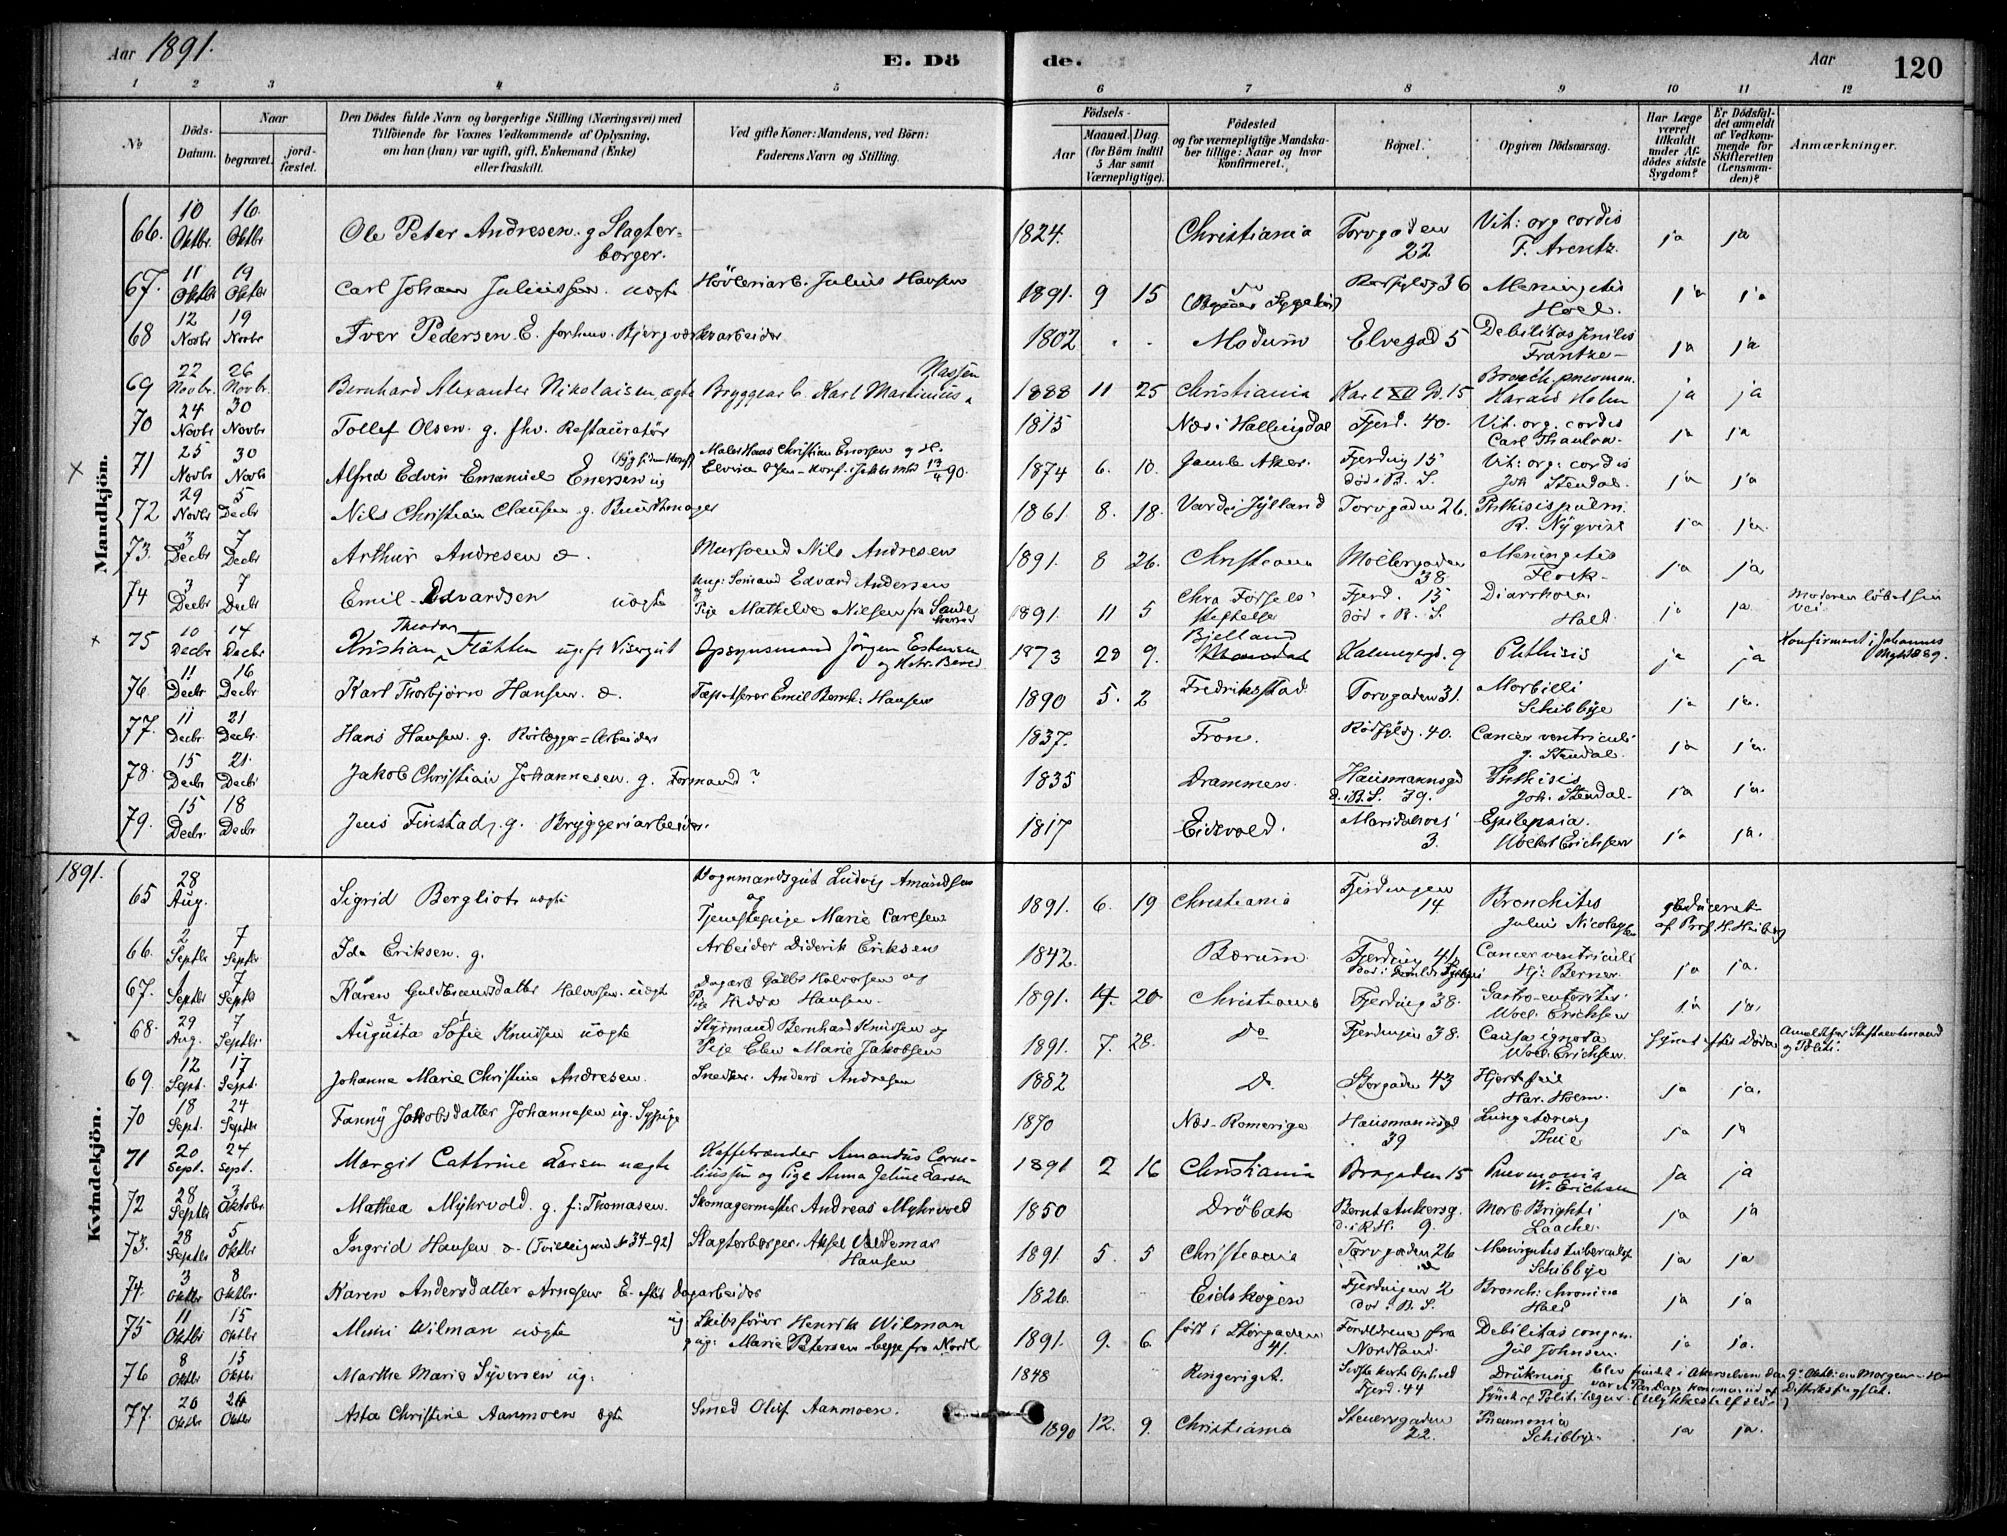 Aar 1891.
E. Dö de.
Aar
120
1 2 3 4 5 6 7 8 9 10 11 12
№
Döds-Datum.
Naar
begravet.
jord-fæstet.
Den Dödes fulde Navn og borgerlige Stilling (Næringsvei) med
Tilföiende for Voxnes Vedkommende af Oplysning,
om han (hun) var ugift, gift, Enkemand (Enke)
eller fraskilt.
Ved gifte Koner: Mandens, ved Börn:
Faderens Navn og Stilling.
Födsels-
Aar
Maaned. Dag.
(for Börn indtil
5 Aar samt
Værnepligtige).
Födested
og for værnepligtige Mandska-
ber tillige: Naar og hvor
konfirmeret.
Bopæl.
Opgiven Dödsaarsag.
Har Læge
været
tilkaldt
under Af-
dödes sidste
Sygdom?
Er Dödsfal-
det anmeldt
af Vedkom-
mende for
Skifteretten
(Lensman-
den)?
Anmærkninger.
Mandkjön.
66. 10 Oktbr 16. Oktbr Ole Peter Andresen. g Slagter-borger. 1824. Christiania Torvgaden 22 Vit: org cordis F. Arentz. ja ja
67. 11 Oktbr 19 Oktbr Carl Johan Juliussen. uægte Hövleriarb. Julius Hansen 1891. 9 15 36 Meningitis Hoel. ja ja
68 12 Novbr 19 Novbr Iver Pedersen E. forhenv. Bjergværksarbeider 1802 Modum Elvegad 5 Debilitas senilis Frantze- ja ja
69 22 Novbr. 26 Novbr. Bernhard Alexander Nikolaisen ægte Bryggearb. Karl Martinius 1888 11 25 Christiania Karl XII G. 15 Bronch. pneumon. Harald Holm ja ja
70 24 Novbr 30 Novbr Tollef Olsen. g. fhv. Restauratør 1815 Næs i Hallingdal Fjerd. 40. Vit. org. cordis Carl Thaulow. ja ja
71 25 Novbr 30 Novbr Alfred Edvin Emanuel Enersen ug Maler Hans Christian Enersen og H. 13/4 90 1874 6. 10. Aker. Fjerding 15 död i B. S. Vit: org: cordis Joh Stendal. ja ja
72 29 Novbr 5 Decbr Nils Christian Clausen g. Buntmager 1861 8. 18. Varde i Jylland Torvgaden 26. Phthisis pulm. R. Nyqvist ja ja
73. 3 Decbr 7 Decbr Arthur Andresen æ. Mursvend Nils Andresen 1891. 8 26. Christiania Möllergaden 38. Meningitis Flock- ja ja
74 3 Decbr 7 Decbr Emil Edvardsen uægte Ung: Sömand Edvard Andersen og Pige Mathilde Nilsen fra Sande 1891. 11 5 Chra Födsels stiftelse Fjerd. 15 död i B. S. Diarrhoea Hald ja ja Moderen löbet sin vei
75 10 Decbr 14 Decbr Kristian Theodor Flötten ugift Visergut Opsynsmand Jörgen Estensen 1873 20 9. Bjelland 9 Phthisis ja ja Konfirmeret i Johannes
76 11 Decbr 16 Decbr Karl Thorbjörn Hansen. æ. Emil Bernh. Hansen 1890 5. 2 Fredrikstad Torvgaden 31. Morbilli Schibbye ja ja.
77. 11 Decbr. 21 Decbr. Hans Hansen. g. Rörlægger=Arbeider 1837. Fron. Rödfyldg. 40. Cancer ventriculi g. Stendal. ja ja.
78. 15 Decbr 21. Decbr Jakob Christian Johannesen. g. Formand? 1835 Drammen. Hausmannsgd D. i B. S. 39. Phthisis Joh. Stendal- ja ja.
79. 15 Decbr 18 Decbr Jens Finstad, g. Bryggeriarbeider. 1817 Eidsvold. Maridalsvei 3. Epilepsia. Woldst Erichsen ja ja.
1891.
Kvindekjön.
65 28 Aug. Sigrid Bergliot uægte Vognmandsgut Ludvig Amundsen og Tjenestepige Marie Carlsen 1891. 6. 19 Christiania Fjerdingen 14 Bronchitis Julius Nicolaysen af Prof H. Heiberg
66. 2 Septbr 7 Septbr Ida Eriksen. g. Arbeider Diderik Eriksen 1842. Bærum Fjerding 41 Cancer ventriculi Hj. Berner ja ja.
67. 1 Septbr 7 Septbr Karen Guldbrandsdatter Halvorsen. uægte Dagarb Gulbr Halvorsen og Pige Hilda Hansen. 1891. 4. 20 Christiania Fjerding 38. Gastro-enteritis Wold. Erichsen ja ja.
68. 29 Aug. 7 Septbr. Augusta Sofie Knudsen uægte Styrmand Bernhard Knudsen og Pige Elen Marie Jakobsen 1891. 7. 28. Do Fjerdingen 38. Causa ignota Wold. Erichsen. Synet efter Döden
69. 12 Sept. 17 Sept. Johanne Marie Christine Andresen. Snedker. Anders Andresen 1882 Do Storgaden 43 Hjertefeil Har. Holm. ja ja.
70 18 Sept. 24 Septbr Fanny Jakobsdatter Johannesen ug. Sypige 1870 Næs-Romerige Hausmannsgd 39 Lungetæring Thue ja ja
71 20 Sept. 24 Sept. Margit Cathrine Larsen uægte Amandus Corneliussen og Pige Anna Jeline Larsen 1891 2 16 Christiania Brogaden 15 Pneumonia W. Erichsen ja ja
72 28 Septbr 3 Oktober. Mathea Myhrvold. g. f: Thomasen. Skomagermester Andreas Myhrvold 1850 Dröbak Bernt Ankersg. D. i R.H. 9. Morb Brighti Laache. ja ja
73. 28 Septbr 5 Oktbr Ingrid Hansen æ. (Tvilling med № 34-92) Slagterborger. Aksel Valdemar Hansen 1891. 5. 5 Christiania Torvgaden 26 Meningitis tubercul. Schibbye ja ja
74. 3 Oktbr 8 Oktbr. Karen Andersdatter Arnesen E. efter Dagarbeider 1826. Eidskogen Fjerdingen 2 död i B. S. Bronch: chronica Hald ja ja
75 11 Oktbr 15 Oktbr Mimi Wilman uægte ug Skibsförer Henrik Wilman og ug: Marie Petersen begge fra Nordl. 1891. 9. 6. född i Storgaden 41. Forældrene fra Nordland. Debilitas congen. Jul Johnsen. ja ja.
76 8 Oktbr 15 Oktbr Marthe Marie Syversen ug. 1848 Ringeriget. Sidste korte Ophold Fjerd. 44 Drukning blev fundet i Akerselven den 9de Oktbr om Morgen
77. 20 Oktbr 26 Oktbr Asta Christine Aanmoen ægte Smed Oluf Aanmoen. 1890 12. 9. Christiania Steenersgaden 22. Pneumonia Schibbye. ja ja.